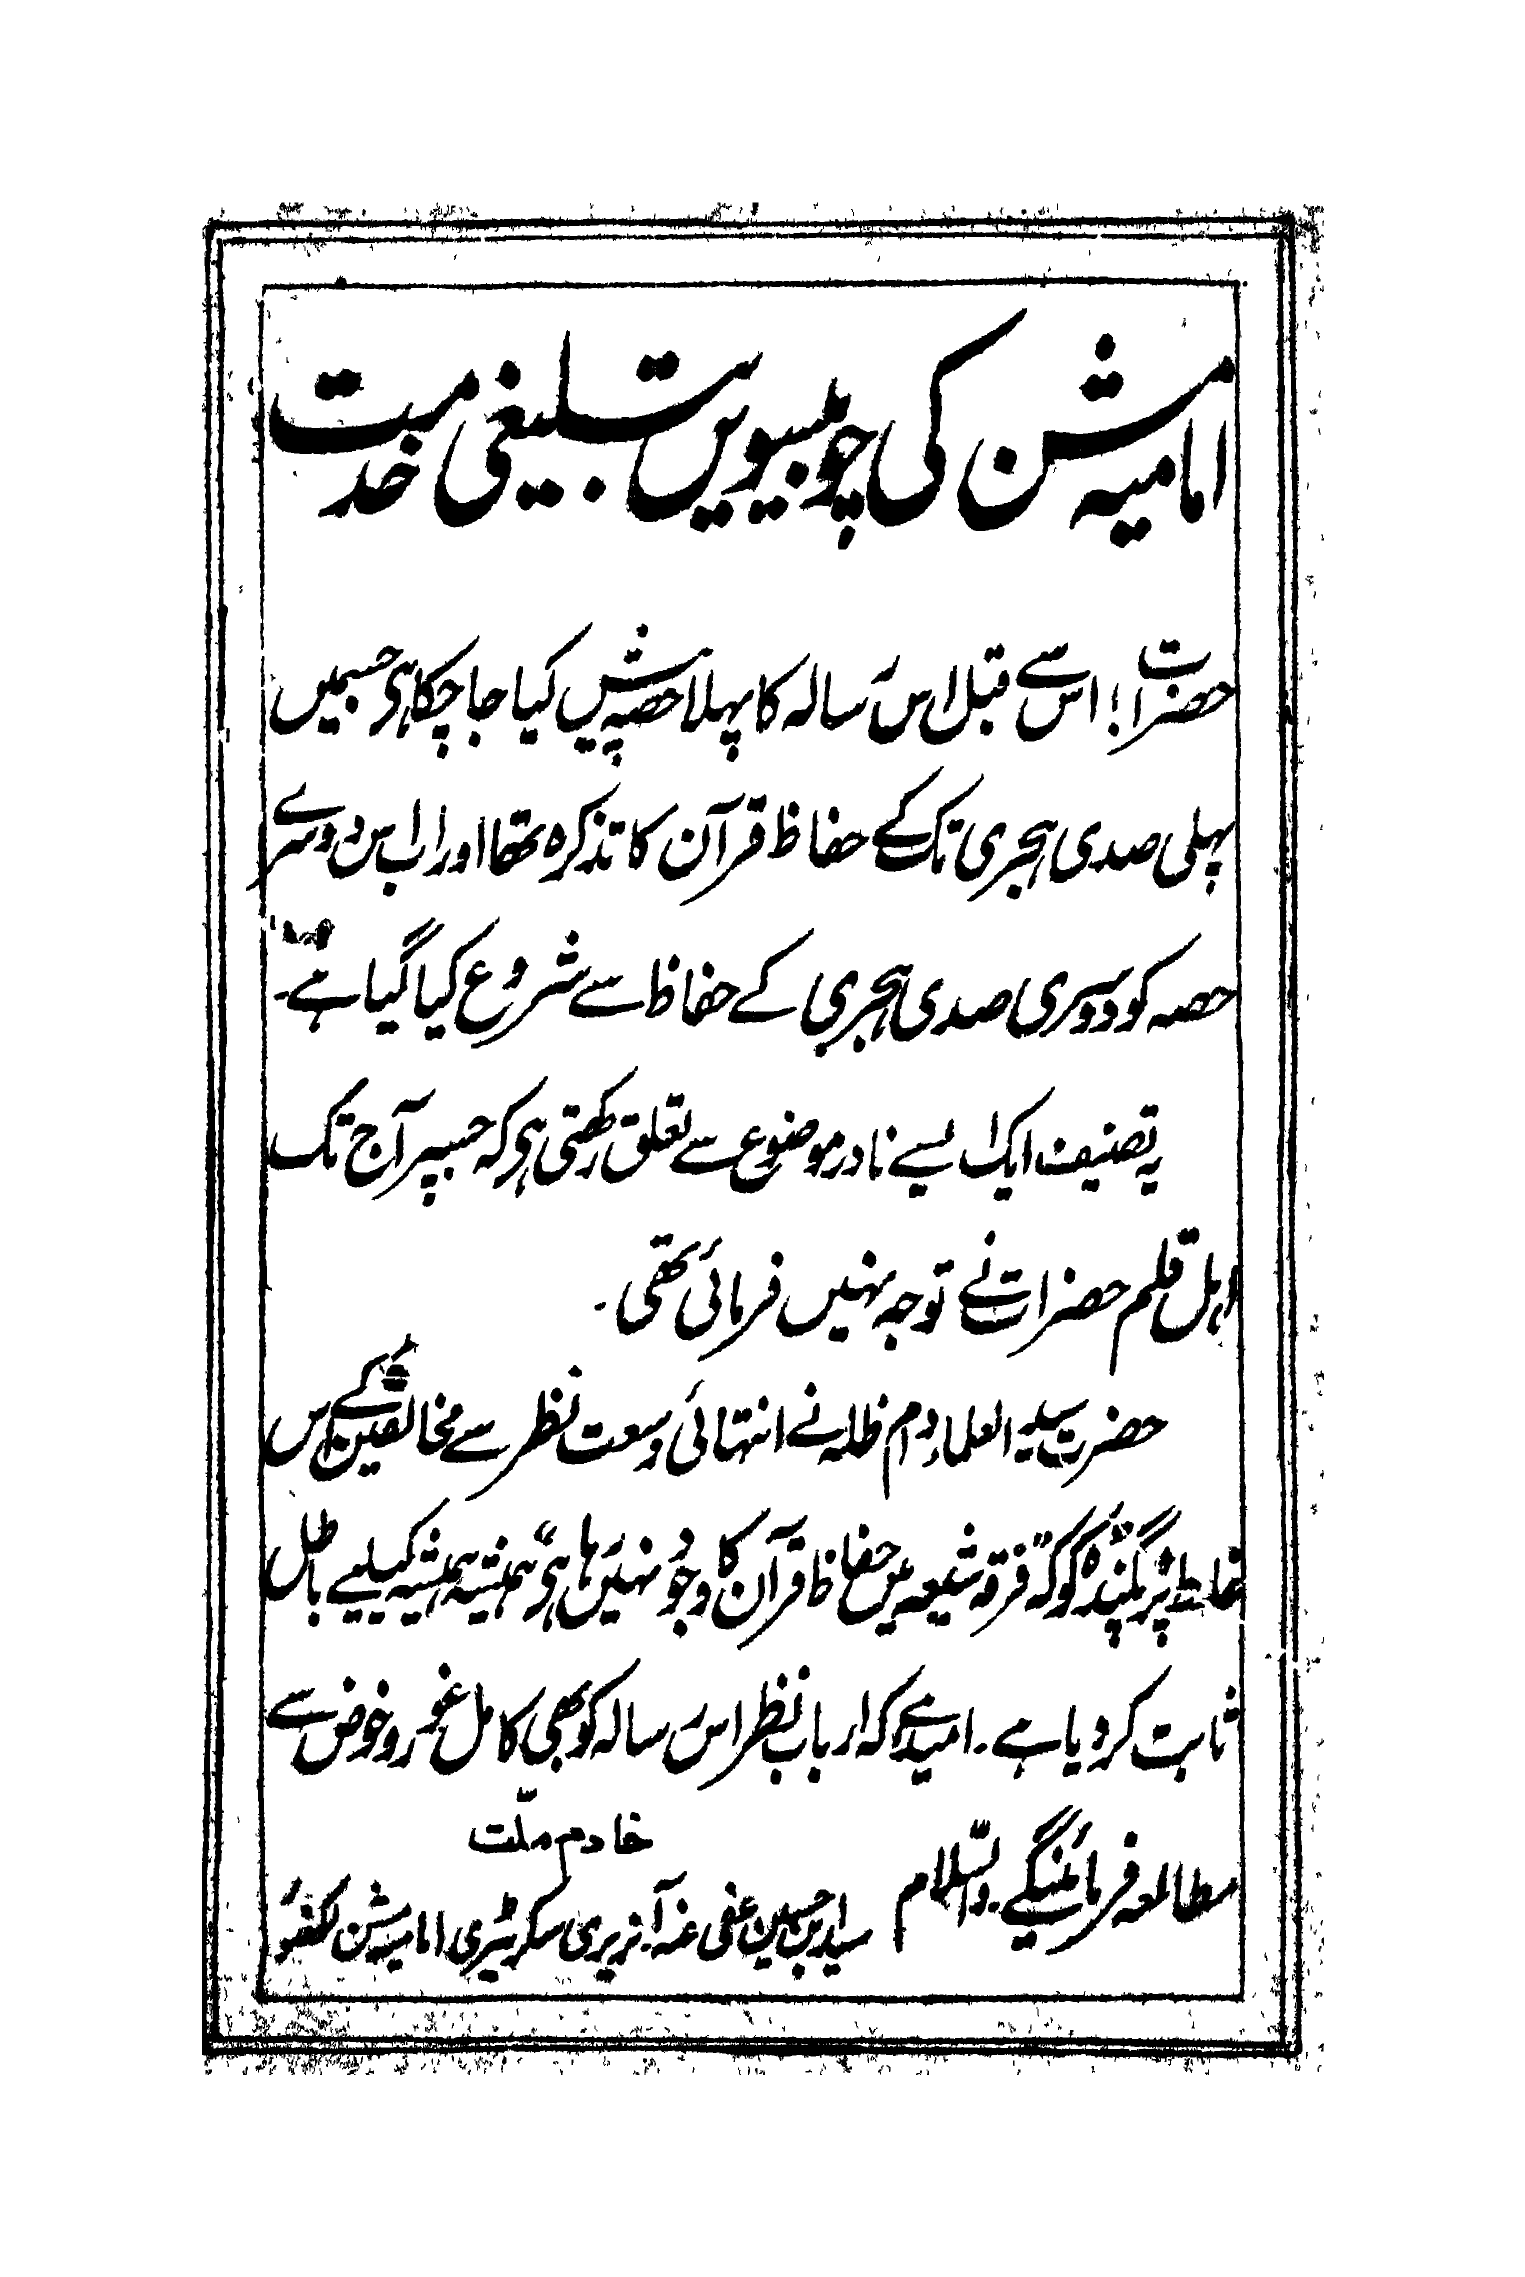 امامیہ مشن کی چوبیسویں تبلیغی خدمت
حضرات! اس سے قبل اس رسالہ کا پہلا حصہ پیش کیا جا چکا ہی جسمیں
پہلی صدی ہجری تک کے حفاظ قرآن کا تذکرہ تھا اور اب اس دوسرے
حصہ کو دوسری صدی ہجری کے حفاظ سے شروع کیا گیا ہے۔
یہ تصنیف ایک ایسے نادر موضوع سے تعلق رکھتی ہی کہ جسپر آج تک
اہل قلم حضرات نے توجہ نہیں فرمائی تھی۔
حضرت سید العلماء دام ظلہ نے انتہائی وسعت نظر سے مخالفین کے اس
غلط پروپگنڈہ کو کہ "فرقہ شیعہ میں حفاظ قرآن کا وجود نہیں رہا ہی" ہمیشہ ہمیشہ کیلیے باطل
ثابت کر دیا ہے۔ امید ہے کہ ارباب نظر اس رسالہ کو بھی کامل غور و خوض سے
مطالعہ فرمائینگے۔ والسّلام
خادم ملّت
سید ابن حسین عفی عنہ آنریری سکریٹری امامیہ مشن لکھنؤ